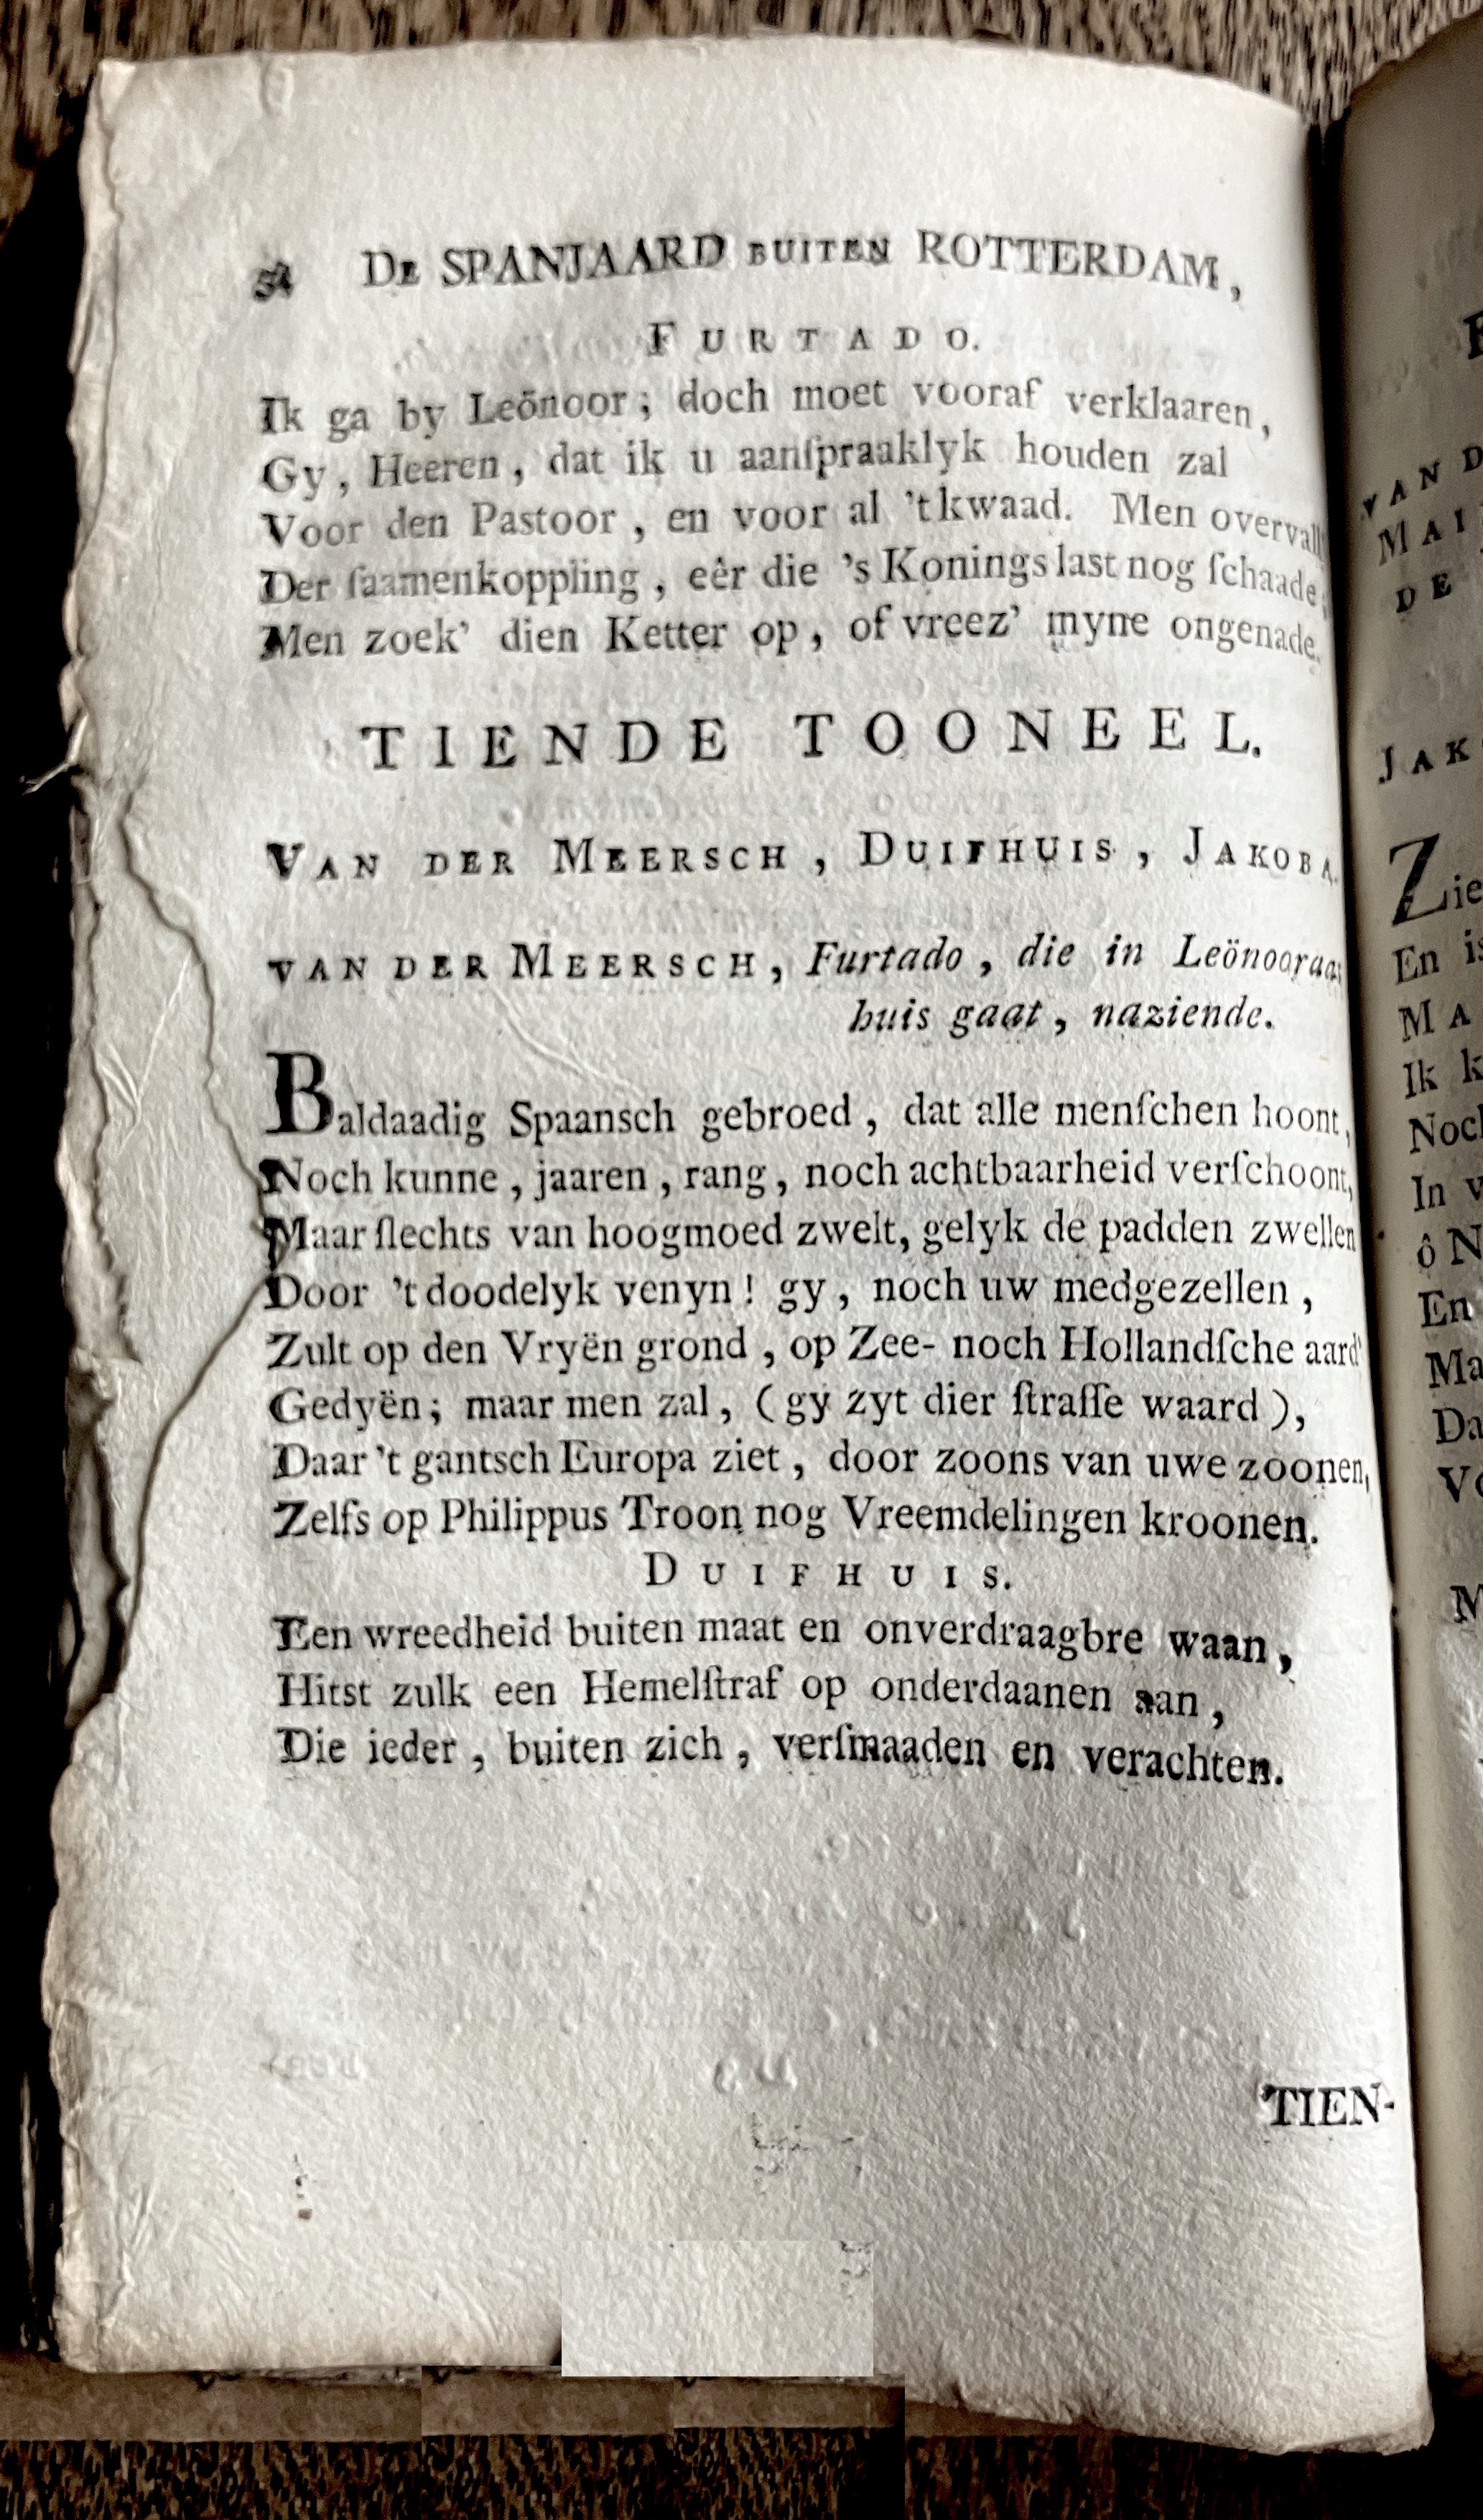 54 DE SPANJAARD BUITEN ROTTERDAM,
FURTADO.
Ik ga by Leönoor; doch moet vooraf verklaaren,
Gy, Heeren, dat ik u aanſpraaklyk houden zal
Voor den Pastoor, en voor al 't kwaad. Men overvall'
Der ſaamenkoppling, eêr die 's Konings last nog ſchaade:
Men zoek' dien Ketter op, of vreez' myne ongenade.
TIENDE TOONEEL.
VAN DER MEERSCH, DUIFHUIS, JAKOBA.
VAN DER MEERSCH, Furtado, die in Leönooraas
huis gaat, naziende.
Baldaadig Spaansch gebroed, dat alle menſchen hoont,
Noch kunne, jaaren, rang, noch achtbaarheid verſchoont,
Maar ſlechts van hoogmoed zwelt, gelyk de padden zwellen
Door 't doodelyk venyn! gy, noch uw medgezellen,
Zult op den Vryën grond, op Zee- noch Hollandſche aard'
Gedyën; maar men zal, (gy zyt dier ſtraffe waard),
Daar 't gantsch Europa ziet, door zoons van uwe zoonen,
Zelfs op Philippus Troon nog Vreemdelingen kroonen.
DUIFHUIS.
Een wreedheid buiten maat en onverdraagbre waan,
Hitst zulk een Hemelſtraf op onderdaanen aan,
Die ieder, buiten zich, verſmaaden en verachten.
TIEN-
VAN D
MAI
DE
JAK
Zie
En is
MA
Ik k
Noch
In v
ô N
En
Ma
Da
Vo
M